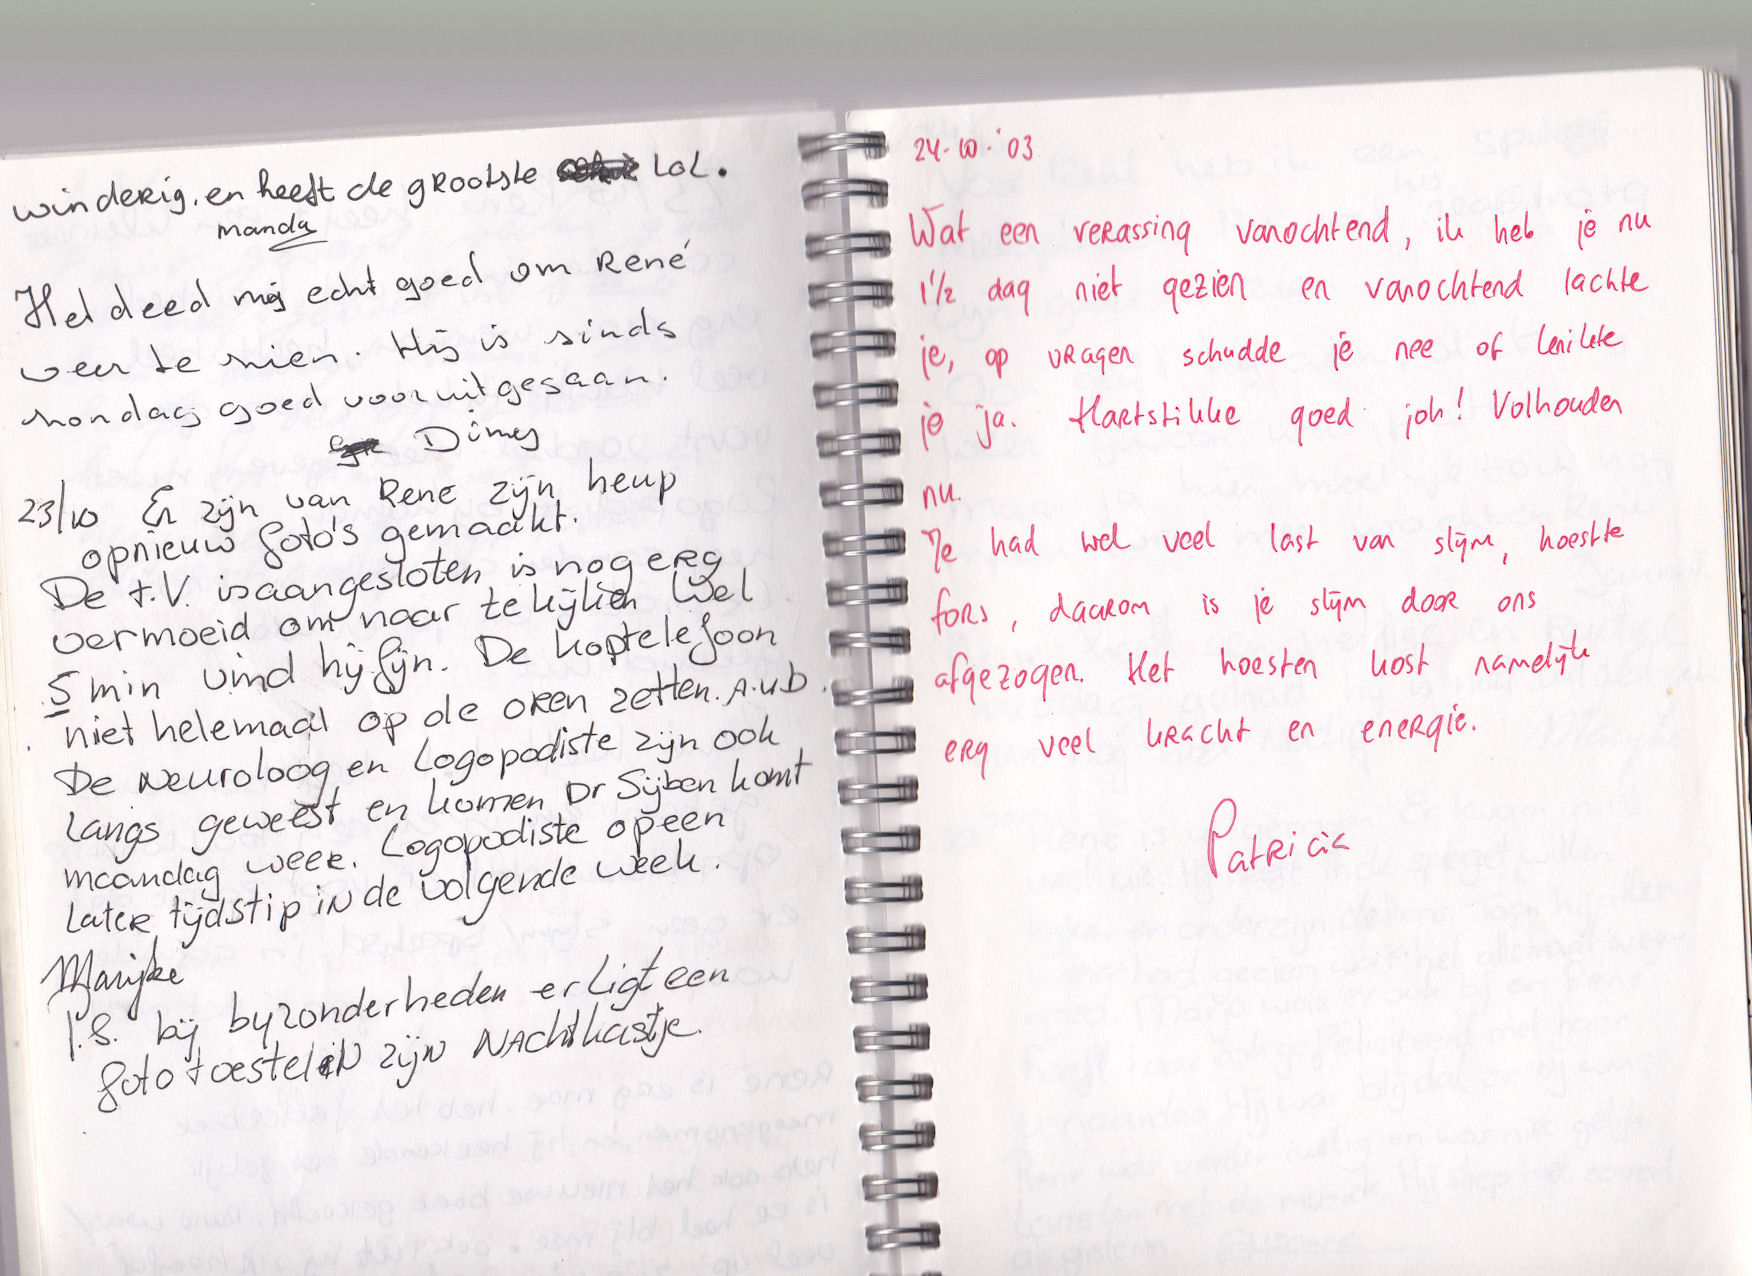 winderig, en heeft de grootste LOL.
manda
Het deed mij echt goed om René
weer te zien. Hij is sinds
zondag goed vooruitgegaan.
Dimy
23/10 Er zijn van Rene zijn heup
opnieuw foto's gemaakt.
De t.V. is aangesloten is nog erg
vermoeid om naar te kijken Wel
5 min vind hij fijn. De koptelefoon
niet helemaal op de oren zetten. A.u.b.
De Neuroloog en Logopediste zijn ook
langs geweest en komen Dr Sijben komt
maandag weer. Logopediste op een
later tijdstip in de volgende week.
Marijke
P.S. bij byzonderheden er ligt een
fototoestel in zijn Nachtkastje.
24-10-'03
Wat een verassing vanochtend, ik heb je nu
1½ dag niet gezien en vanochtend lachte
je, op vragen schudde je nee of knikte
je ja. Hartstikke goed joh! Volhouden
nu.
Je had wel veel last van slijm, hoestte
fors, daarom is je slijm door ons
afgezogen. Het hoesten kost namelijk
erg veel kracht en energie.
Patricia